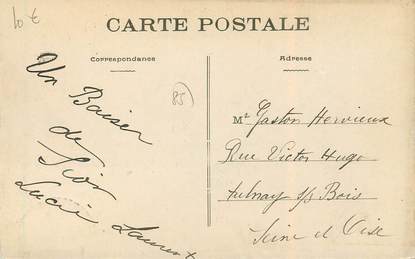 10 €
CARTE POSTALE
Correspondance
Adresse
Un Baiser
de
Lucie Laurent
85
Mr Gaston Hervieux
Rue Victor Hugo
Aulnay s/s Bois
Seine et Oise